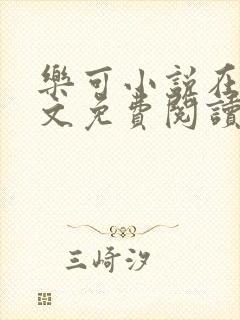 樂可小說在
文免費閱讀
三崎汐